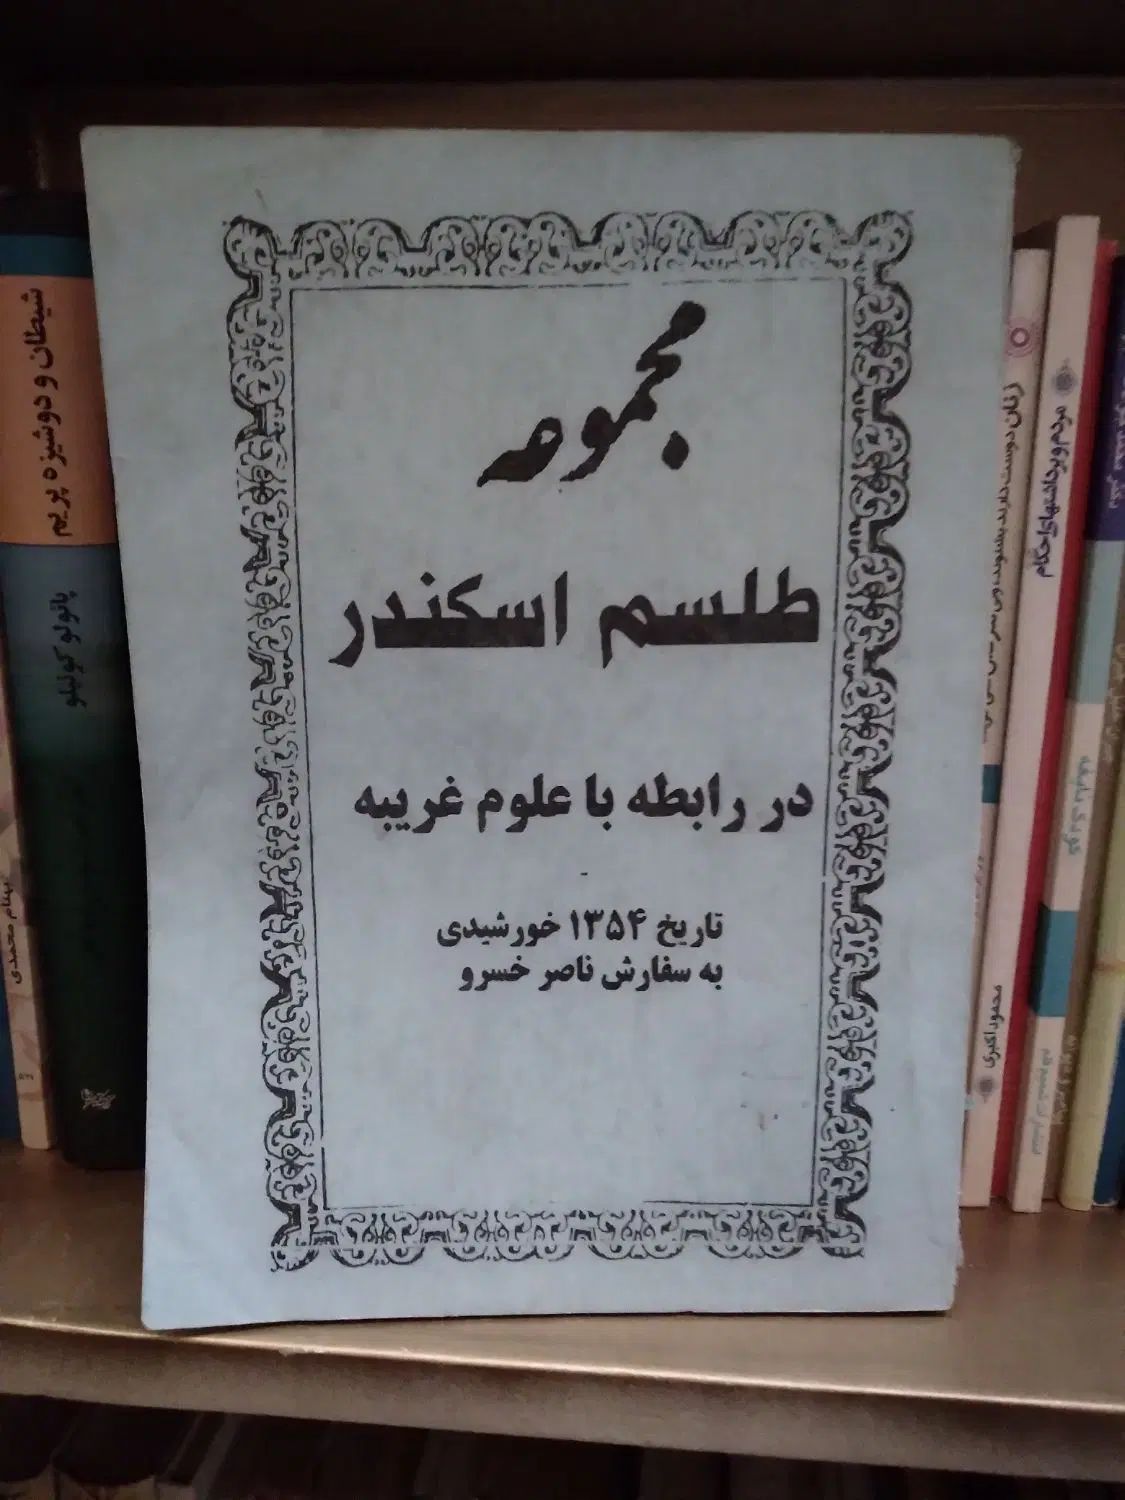 مجموعه
طلسم اسکندر
در رابطه با علوم غریبه
تاریخ ۱۳۵۴ خورشیدی
به سفارش ناصر خسرو
شیطان و دوشیزه پریم
پائولو کوئیلو
بهنام محمدی
زنان دوست دارند بشنوند
محمود اکبری
مردم و برداشتهای احکام